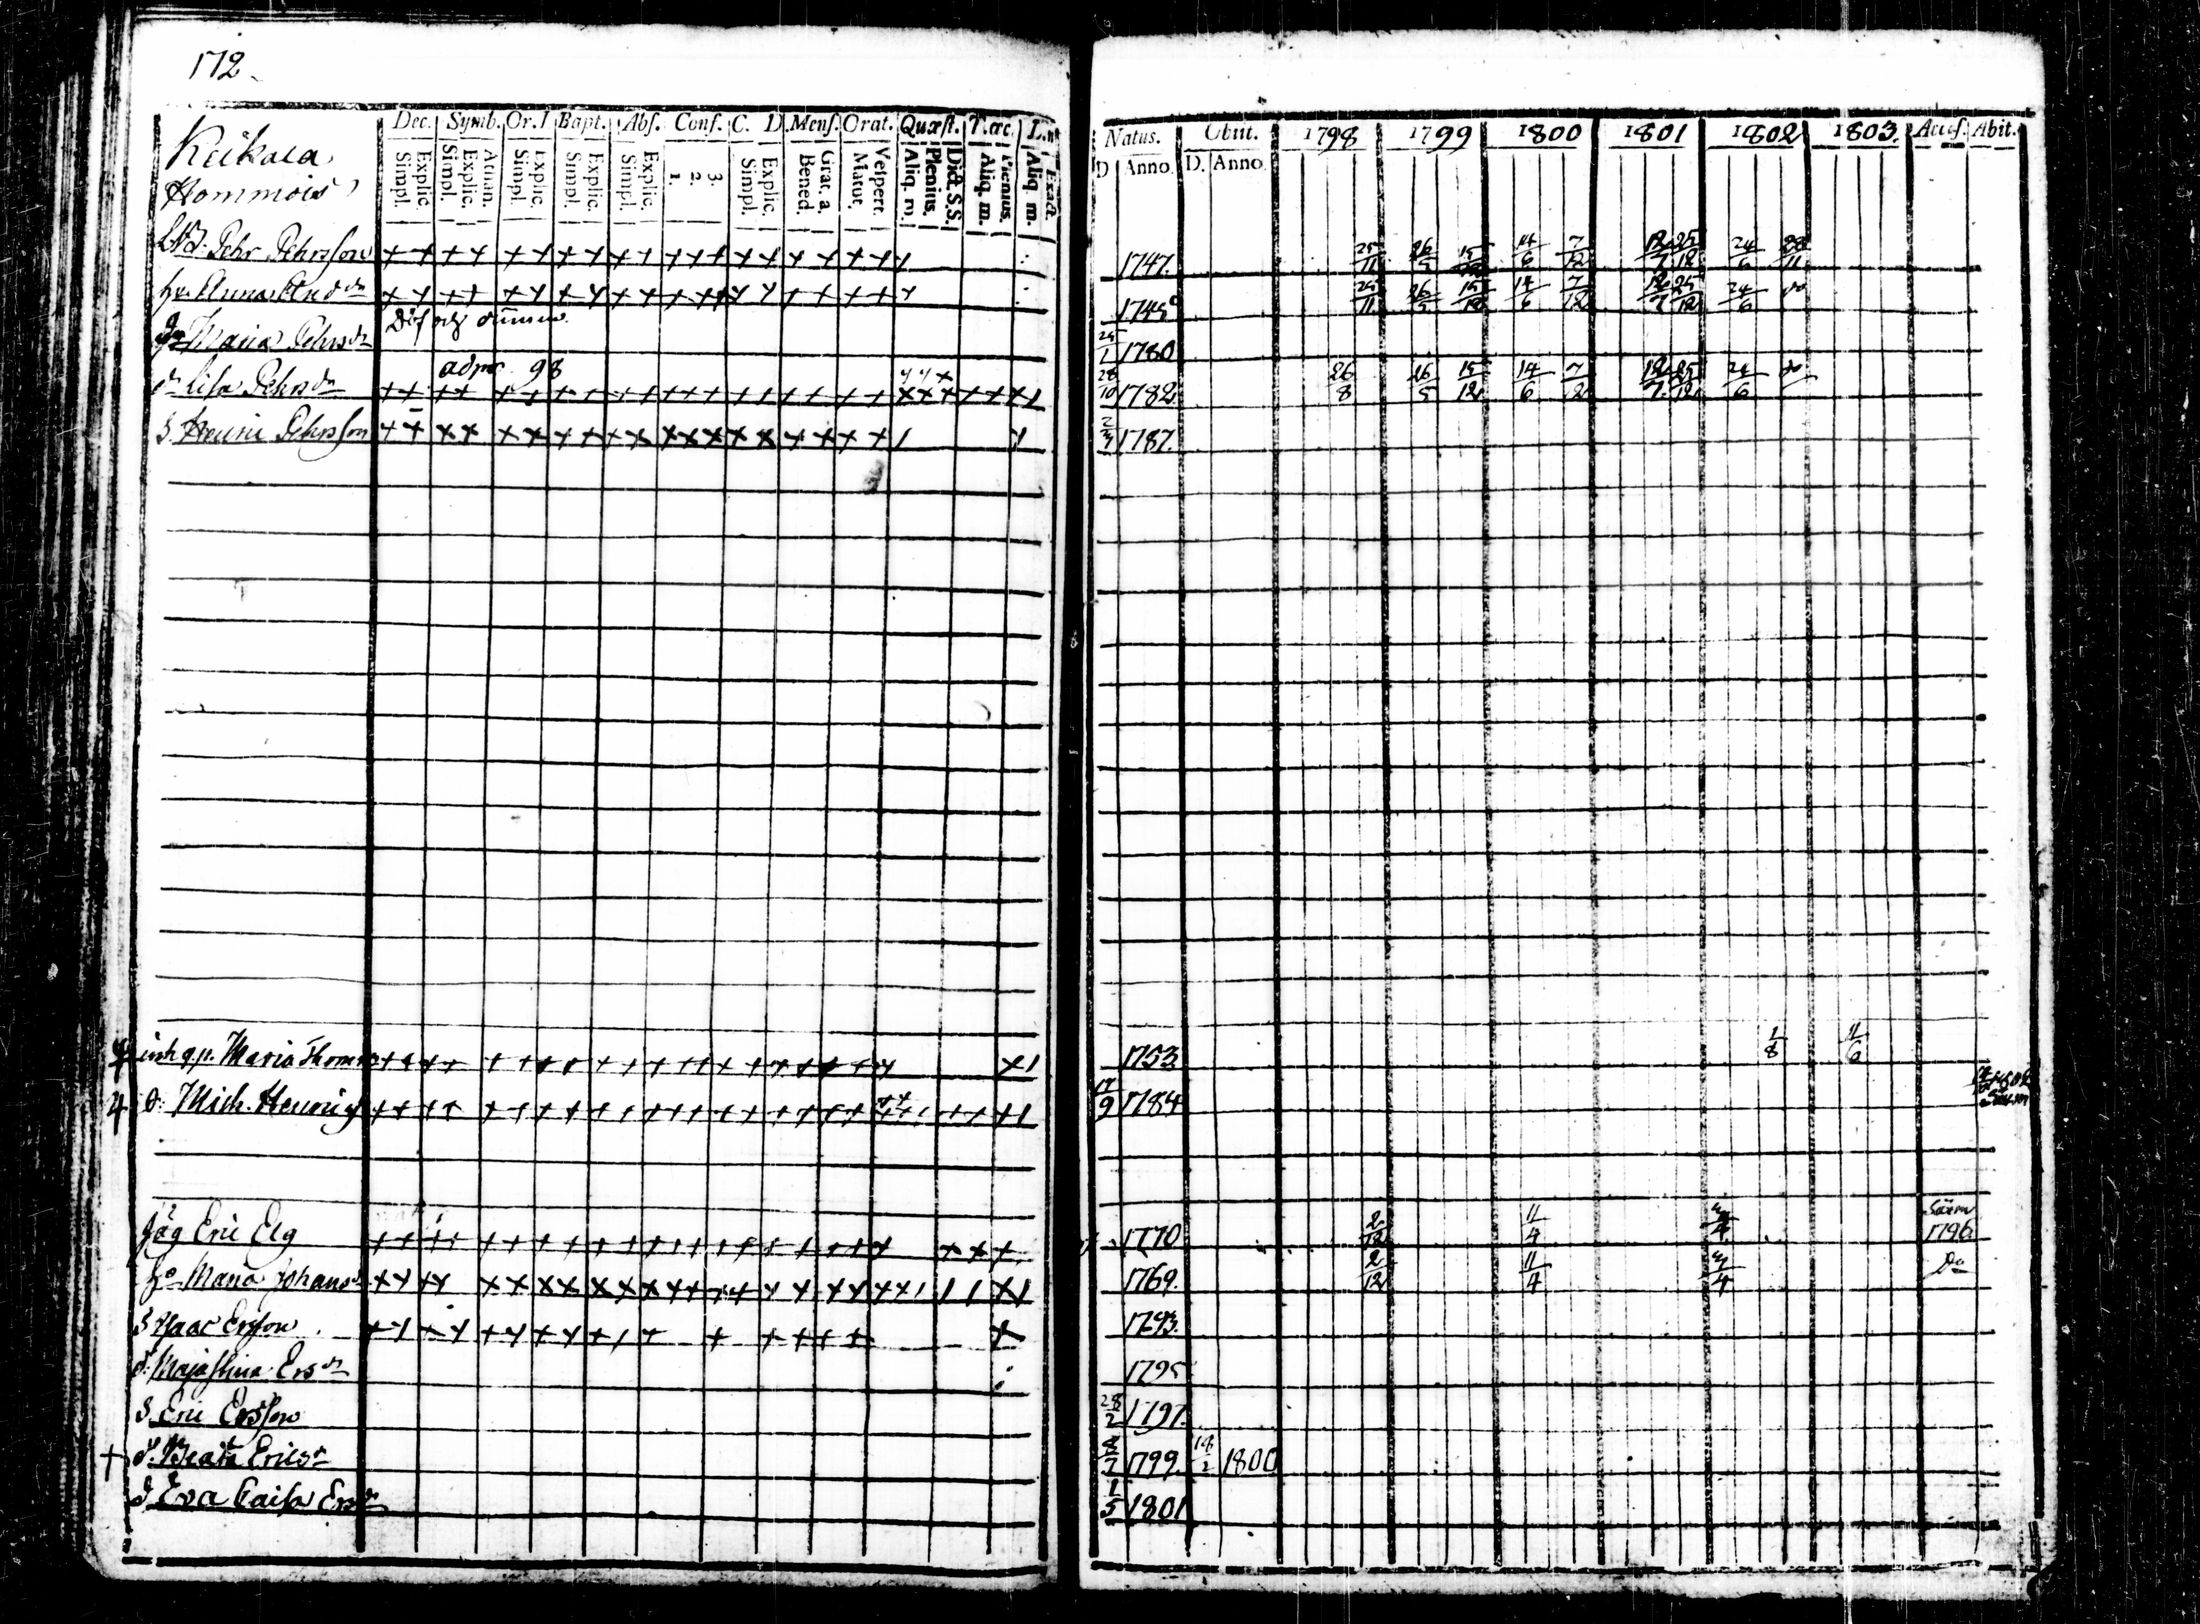 172.
Dec. Symb. Or. D Bapt. Abs. Conf. C. D Mens. Orat. Quæst. T. œc. L.
Simpl. Explic. Simpl. Explic. Atnan. Simpl. Explic. Simpl. Explic. Simpl. Explic. 1. 2. 3. Simpl. Explic. Bened. Grat. a. Matut. Vespert. Aliq. m. Plenius. Dict. S.S. Aliq. m. Plenius. Aliq. m. Exact.
Keikala
Hommois
Pehr Pehrsson
h. Anna And dr
Döf och dumm
Maria Pehrs dr
adm. 98
dr Lisa Pehrs dr
S. Henric Pehrsson
inh q.p. Maria Thom
d. Mich. Henric
Jäg Eric Elg
ho Maria Johans dr
S Isaac Ersson
d. Maja Stina Ers dr
S. Eric Ersson
+ d. Beata Erics dr
d Eva Caisa Ers dr
Natus. Obiit. 1798 1799 1800 1801 1802 1803. Acces. Abit.
D Anno D. Anno
1747. 25/11 26/5 15/12 14/6 7/12 12/7 25/12 24/6 28/11
1745 25/11 26/5 15/12 14/6 7/12 12/7 25/12 24/6 do
25/1 1780
28/10 1782 26/8 26/5 15/12 14/6 7/12 12/7 25/12 24/6 do
1787.
1753 1/8 11/6
17/9 1784
1770 2/12 11/4 4/4 1796
1769. 2/12 11/4 4/4 Do
1793.
1795
28/2 1797.
8/7 1799. 18/2 1800
1/5 1801